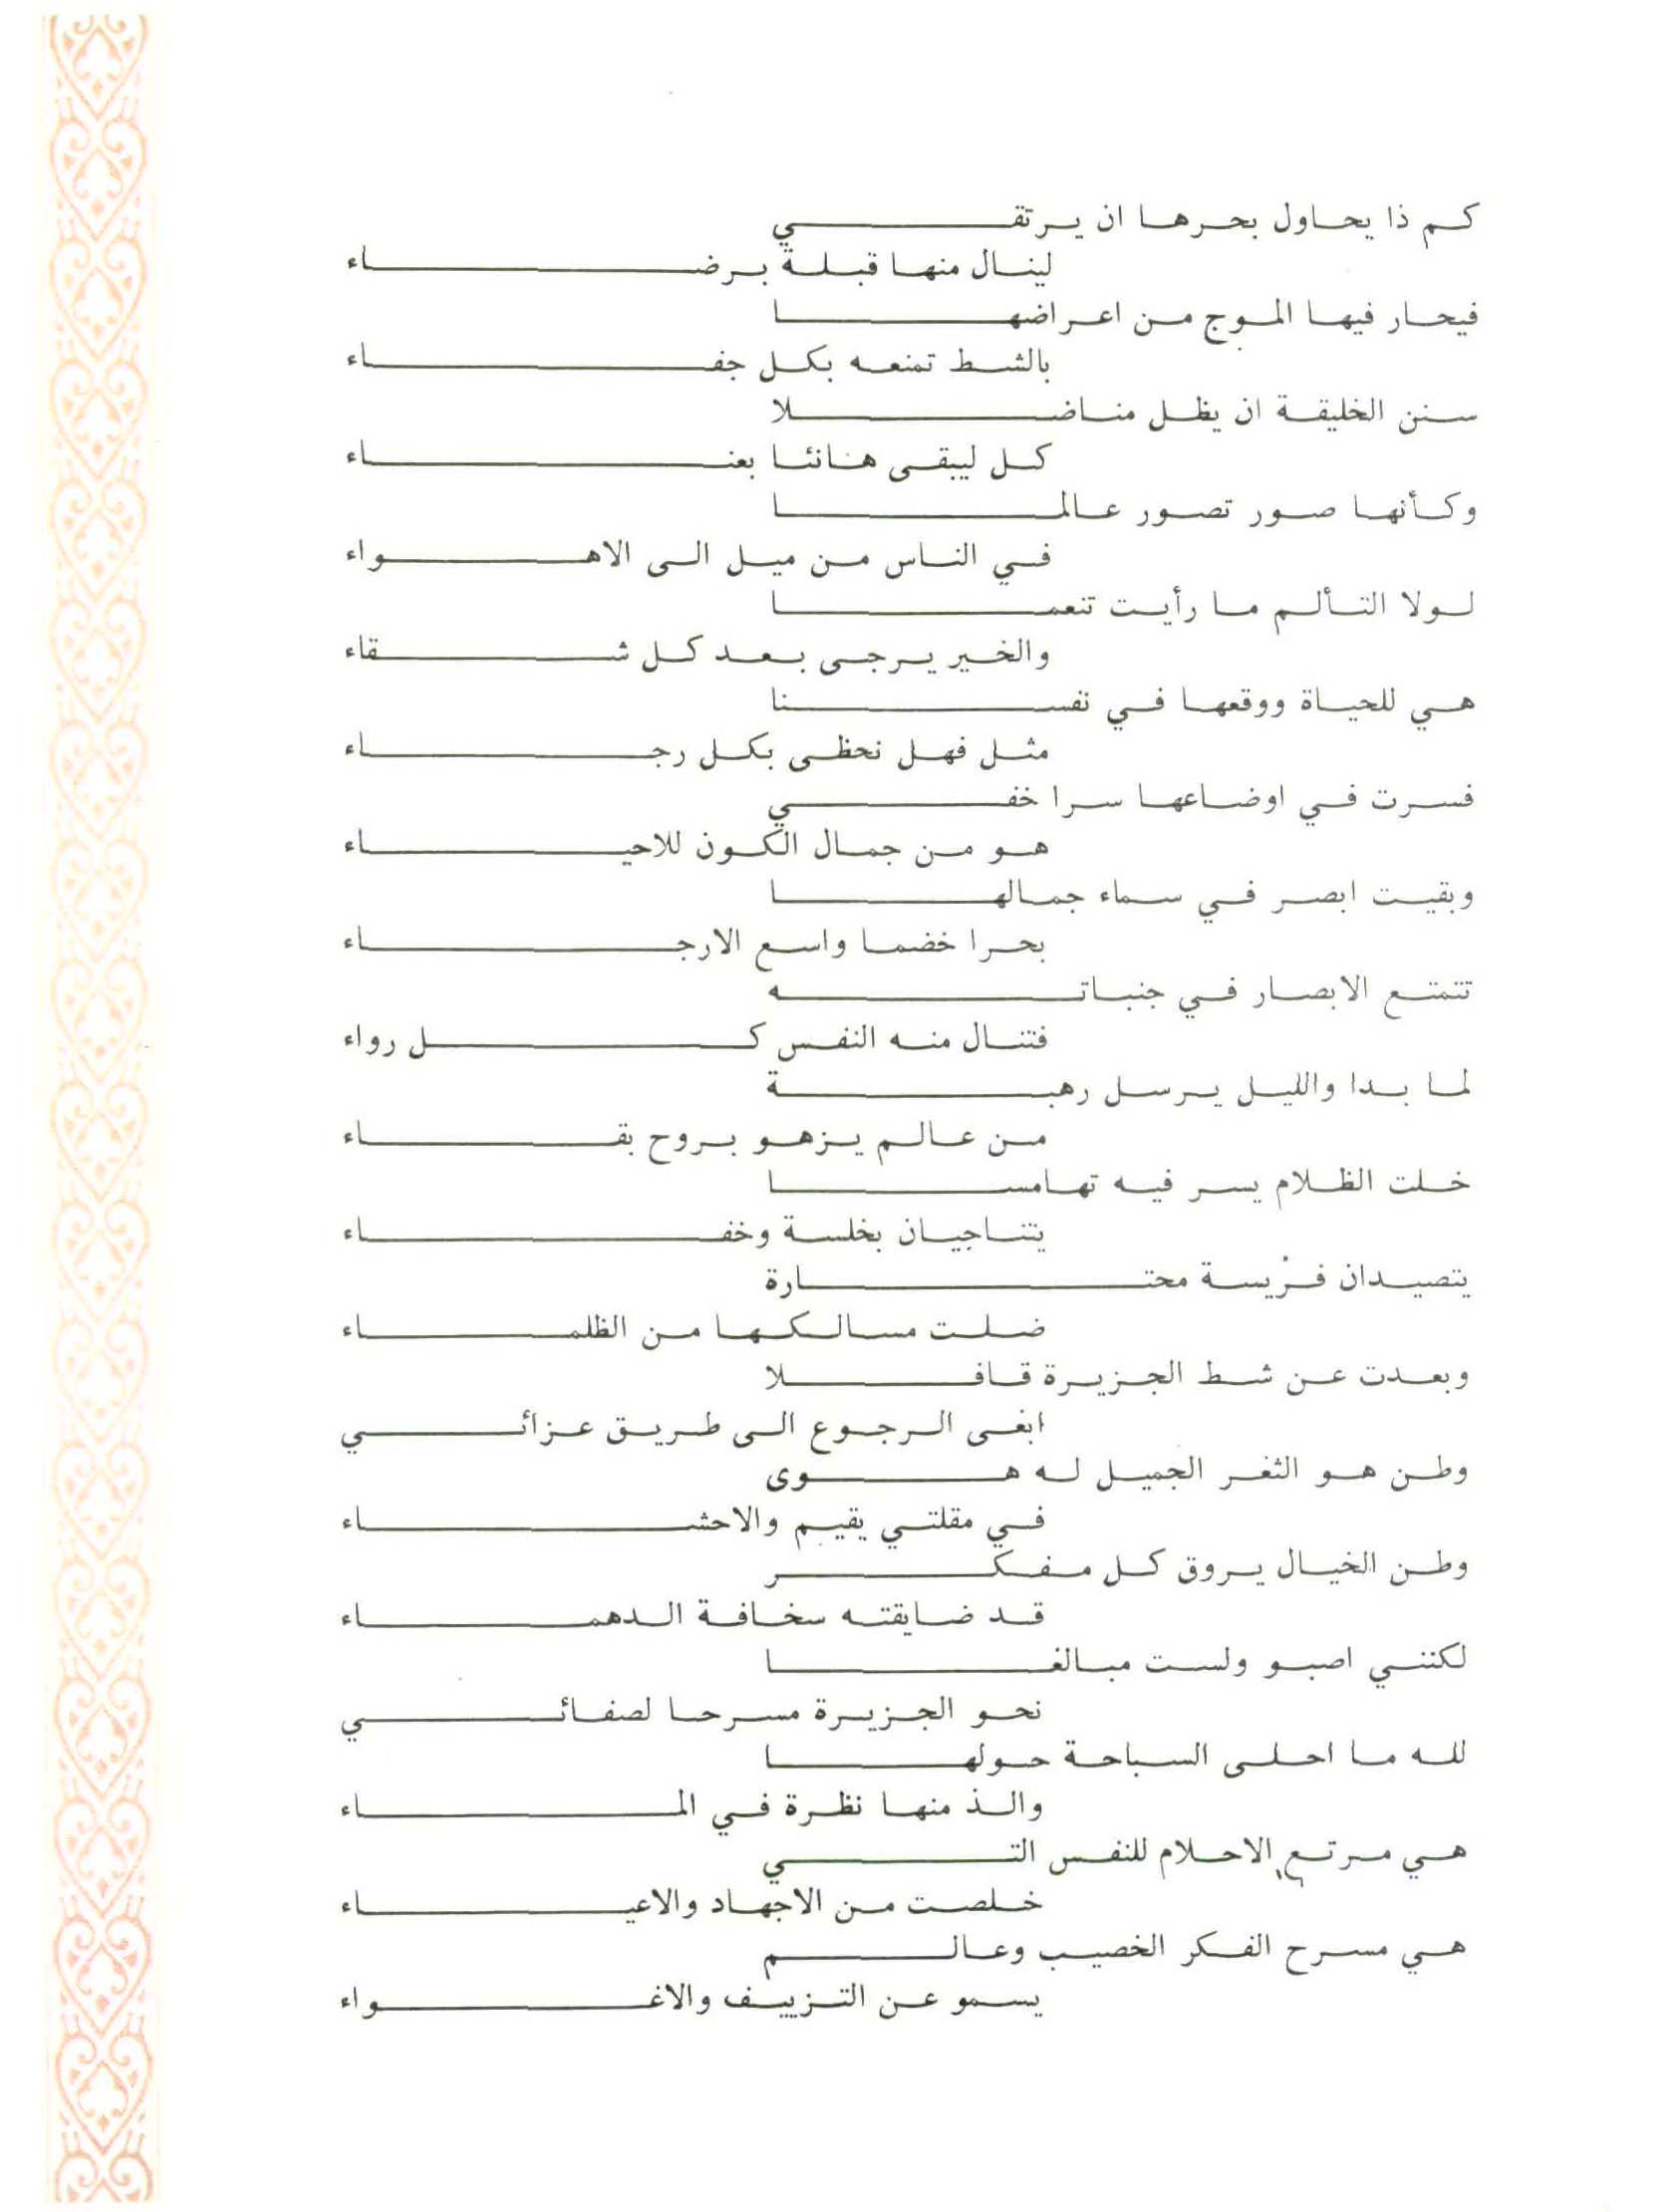 كم ذا يحاول بحرها ان يرتقي
لينال منها قبلة برضاء
فيحار فيها الموج من اعراضها
بالشط تمنعه بكل جفاء
سنن الخليقة ان يظل مناضلا
كل ليبقى هانئا بعناء
وكأنها صور تصور عالما
في الناس من ميل الى الاهواء
لولا التألم ما رأيت تنعما
والخير يرجى بعد كل شقاء
هي للحياة ووقعها في نفسنا
مثل فهل نحظى بكل رجاء
فسرت في اوضاعها سرا خفي
هو من جمال الكون للاحياء
وبقيت ابصر في سماء جمالها
بحرا خضما واسع الارجاء
تتمتع الابصار في جنباته
فتنال منه النفس كل رواء
لما بدا والليل يرسل رهبة
من عالم يزهو بروح بقاء
خلت الظلام يسر فيه تهامسا
يتناجيان بخلسة وخفاء
يتصيدان فريسة محتارة
ضلت مسالكها من الظلماء
وبعدت عن شط الجزيرة قافلا
ابغى الرجوع الى طريق عزائي
وطن هو الثغر الجميل له هوى
في مقلتي يقيم والاحشاء
وطن الخيال يروق كل مفكر
قد ضايقته سخافة الدهماء
لكنني اصبو ولست مبالغا
نحو الجزيرة مسرحا لصفائي
لله ما احلى السباحة حولها
والذ منها نظرة في الماء
هي مرتع الاحلام للنفس التي
خلصت من الاجهاد والاعياء
هي مسرح الفكر الخصيب وعالم
يسمو عن التزييف والاغواء